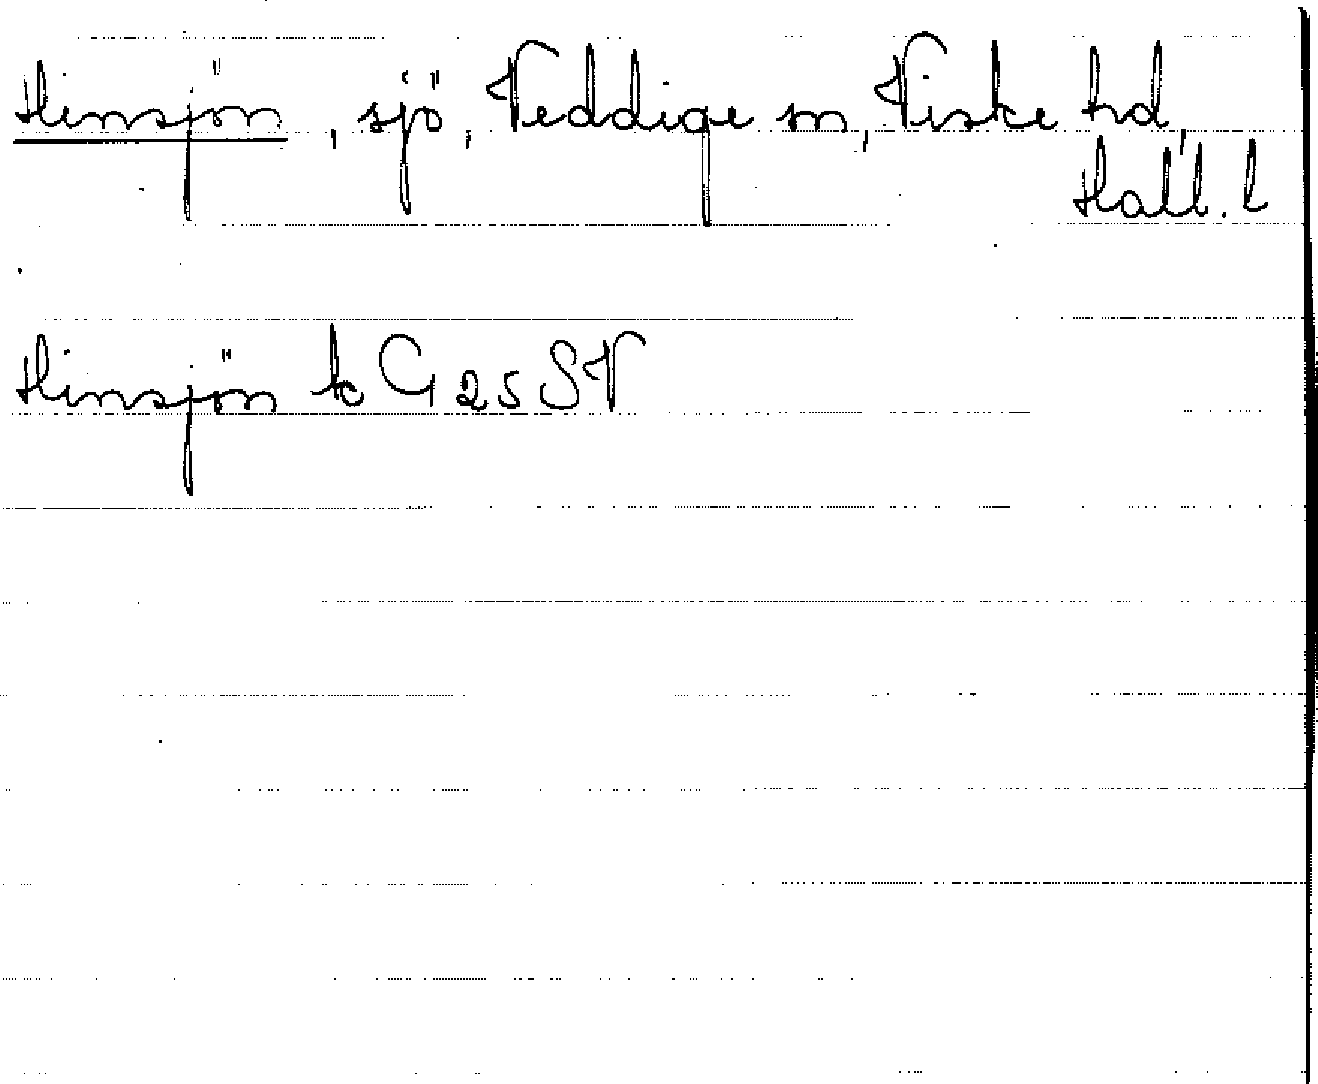 Himsjön, sjö, Veddige sn, Viske hd,
Hall. l
Himsjön to G 25 SV